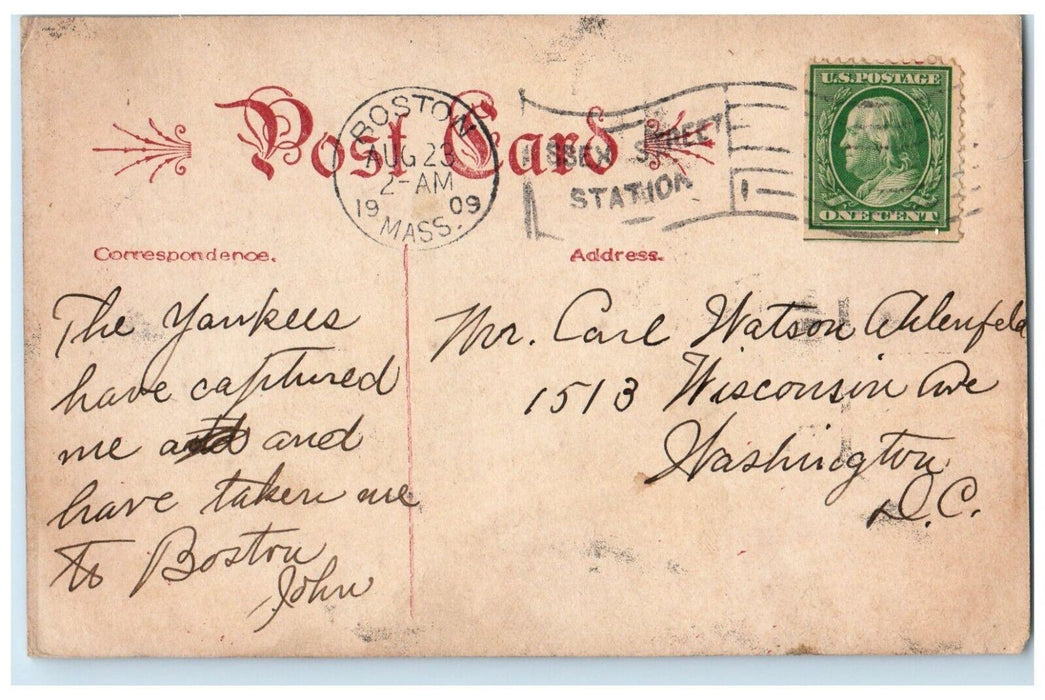 U.S. POSTAGE
ONE CENT
Post Card
BOSTON
AUG 23
2-AM
1909
MASS.
ESSEX STREET
STATION
Correspondence.
The Yankees
have captured
me and
have taken me
to Boston
John
Address.
Mr. Carl Watson Ahlenfeld
1513 Wisconsin Ave
Washington
D.C.